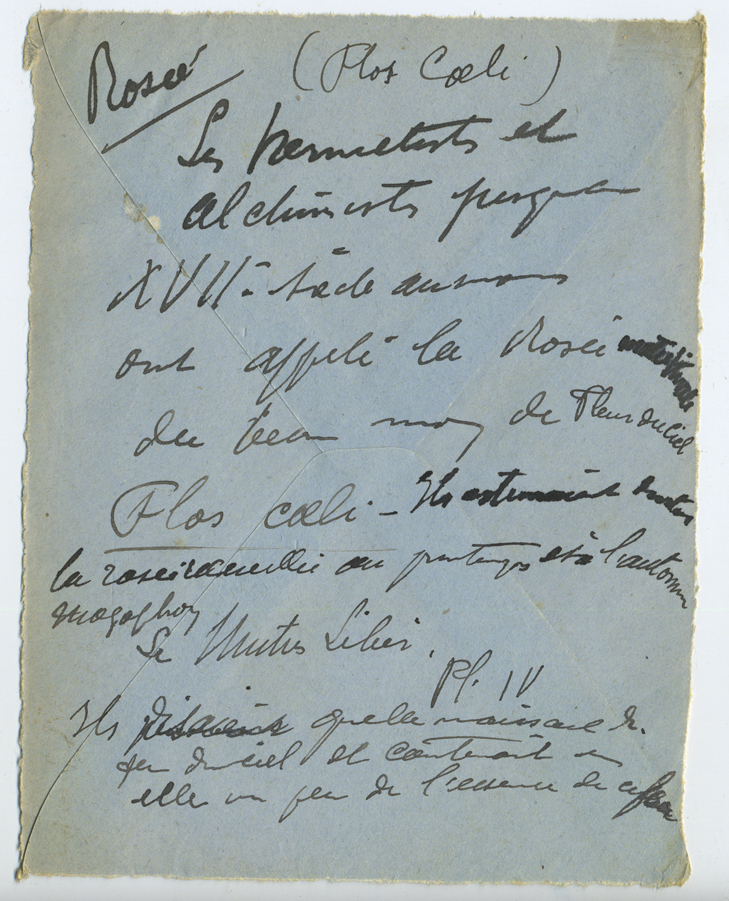 Rosée (Flos Cœli)
Les hermetists et
alchimists jusqu'au
XVIIe siècle
ont appelé la Rosée
du beau nom de Fleur du Ciel
Flos cœli – Ils estimaient surtout
la rosée recueillie au printemps et à l'automne
Le Mutus Liber,
Pl. IV
Ils disaient qu'elle naissait du
feu du ciel et contenait en
elle un peu de l'essence de ce feu